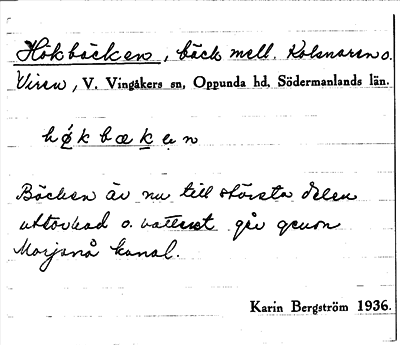 Hökbäcken, bäck mell. Kolsnaren o.
Viren, V. Vingåkers sn, Oppunda hd, Södermanlands län.
hǿkbœken
Bäcken är nu till största delen
uttorkad o. vattnet går genom
Morjsnå kanal.
Karin Bergström 1936.